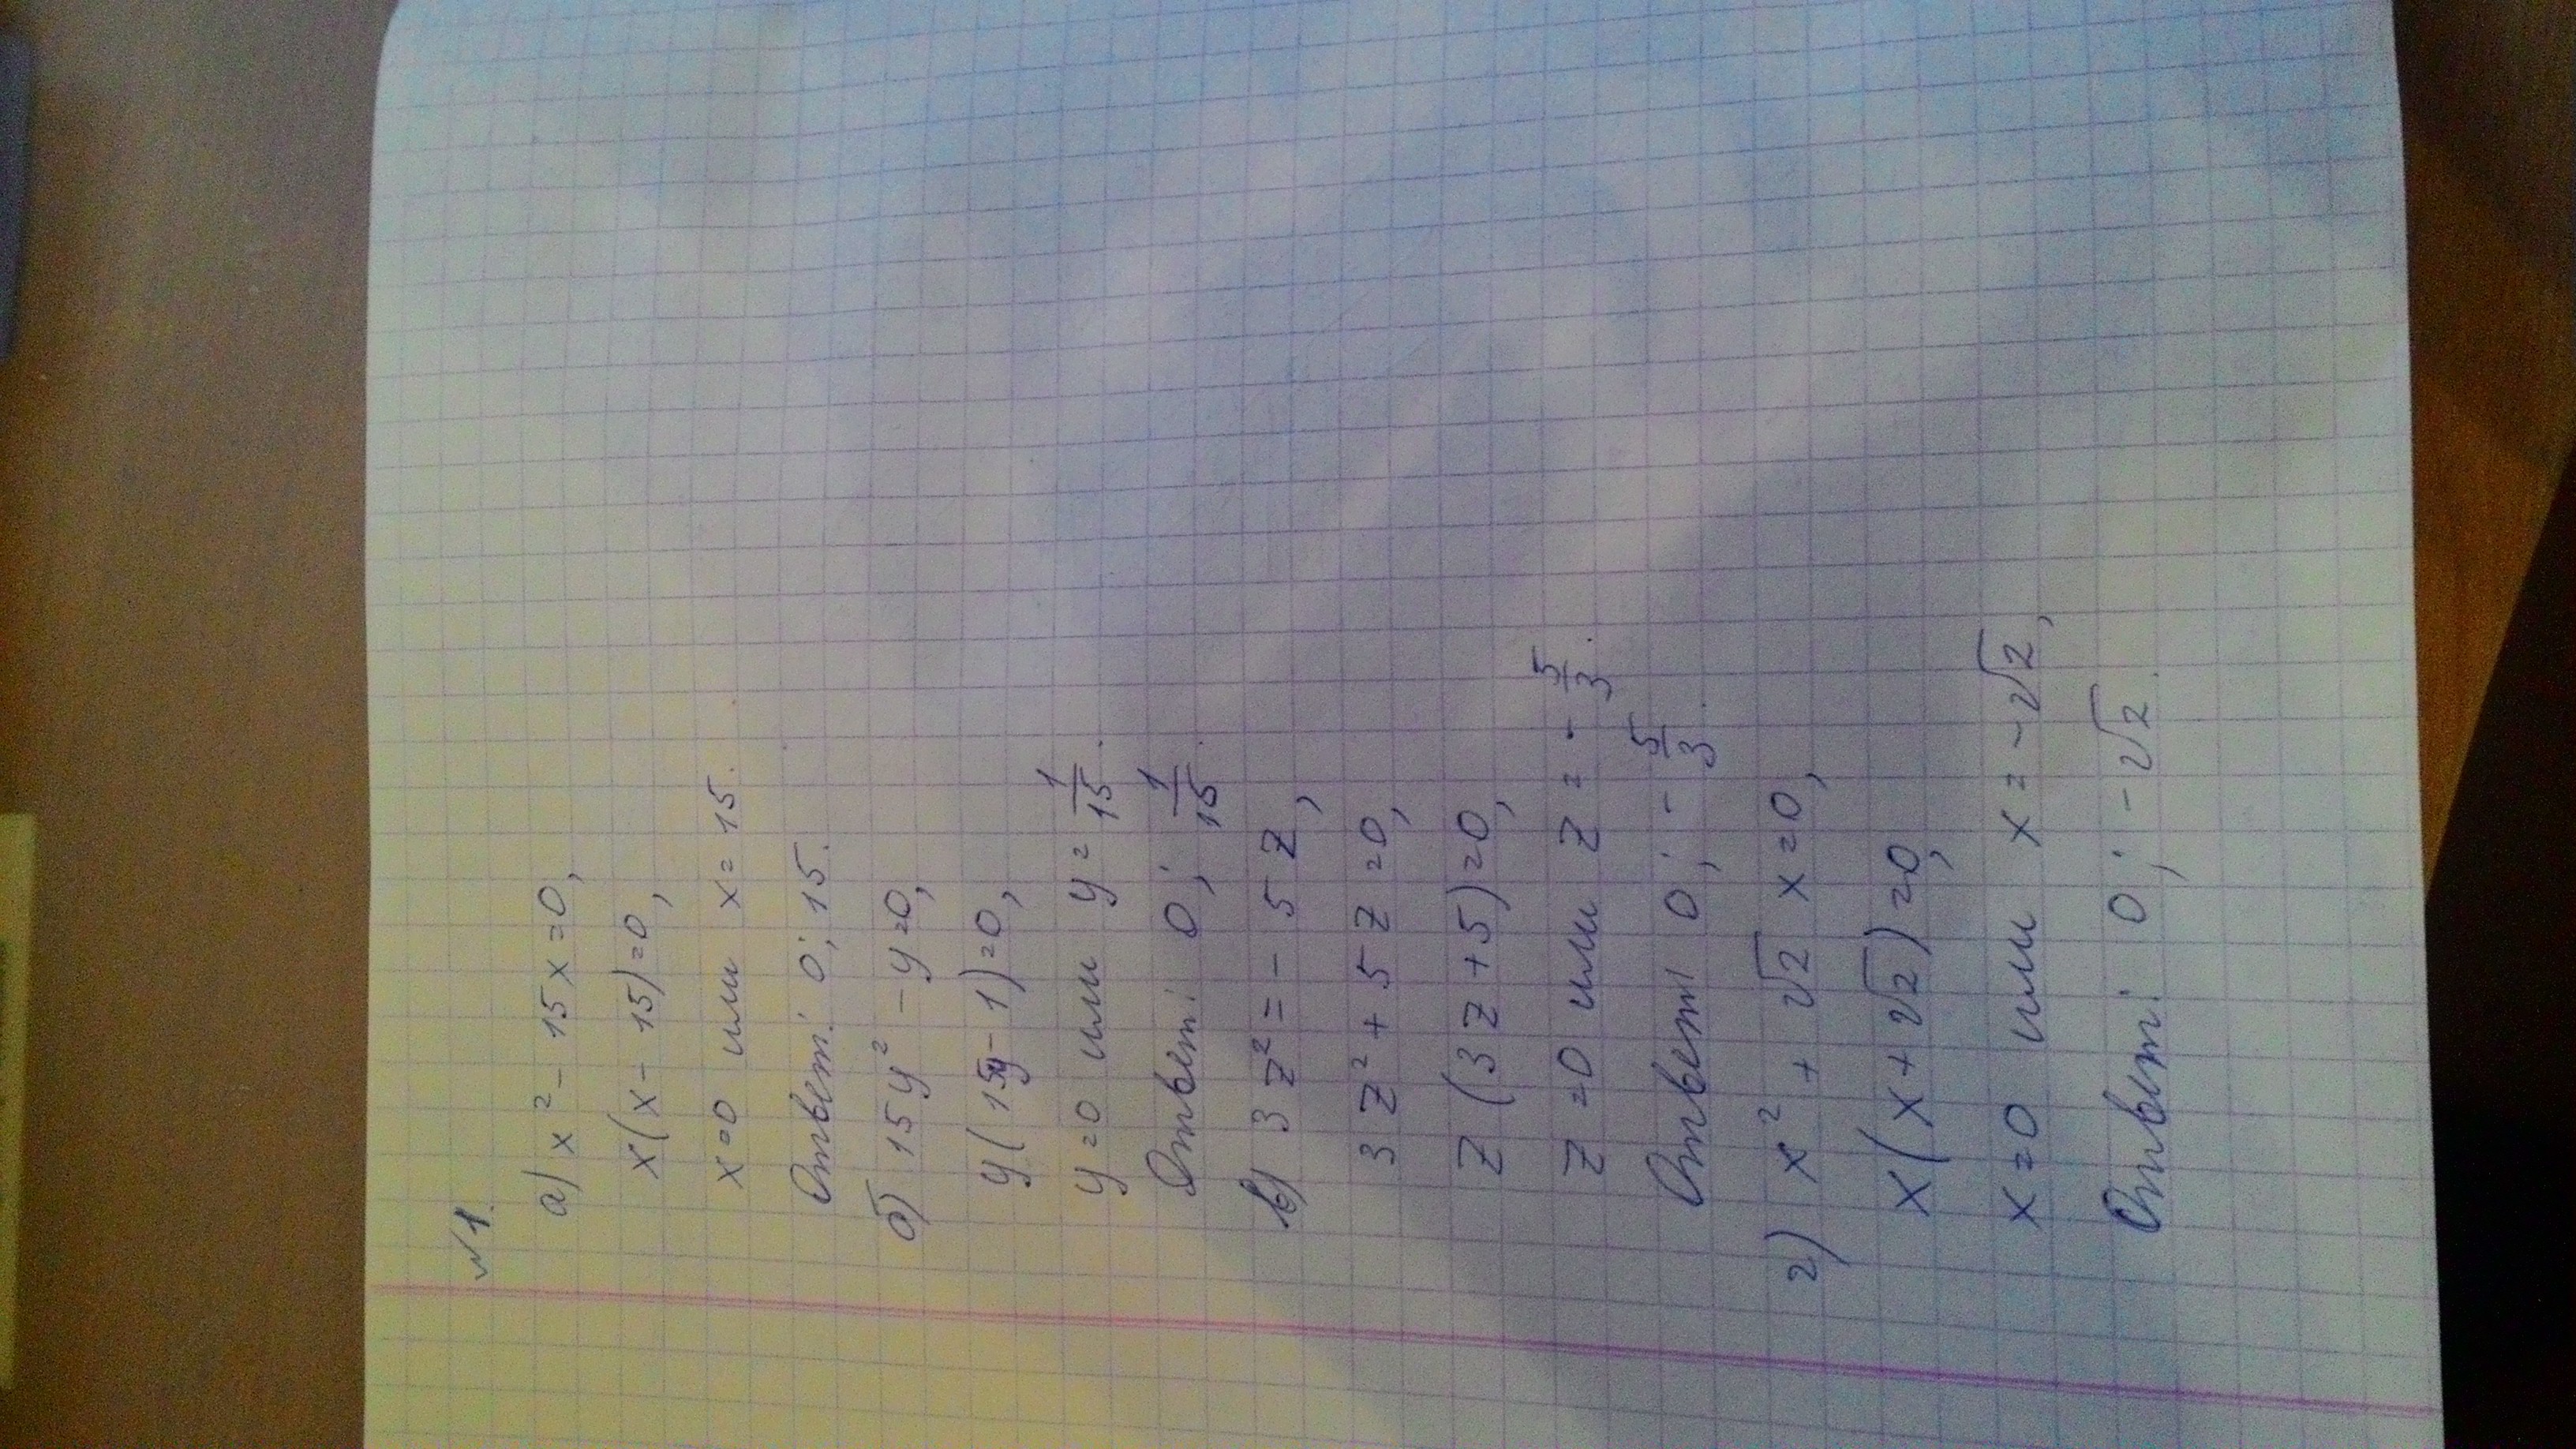 №1.
а) x² - 15x = 0,
x(x - 15) = 0,
x = 0 или x = 15.
Ответ: 0; 15.
б) 15y² - y = 0,
y(15y - 1) = 0,
y = 0 или y = 1/15.
Ответ: 0; 1/15.
в) 3z² = - 5z,
3z² + 5z = 0,
z(3z + 5) = 0,
z = 0 или z = - 5/3.
Ответ: 0; - 5/3.
г) x² + √2 x = 0,
x(x + √2) = 0,
x = 0 или x = - √2,
Ответ: 0; - √2.